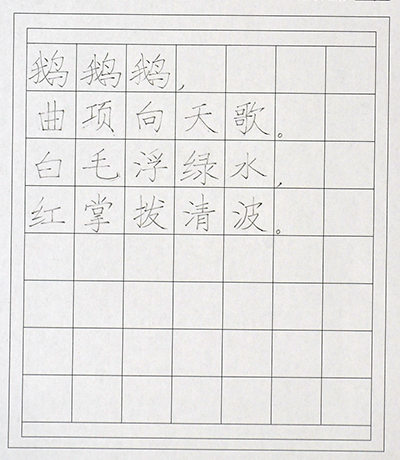 鹅鹅鹅,
曲项向天歌。
白毛浮绿水,
红掌拨清波。